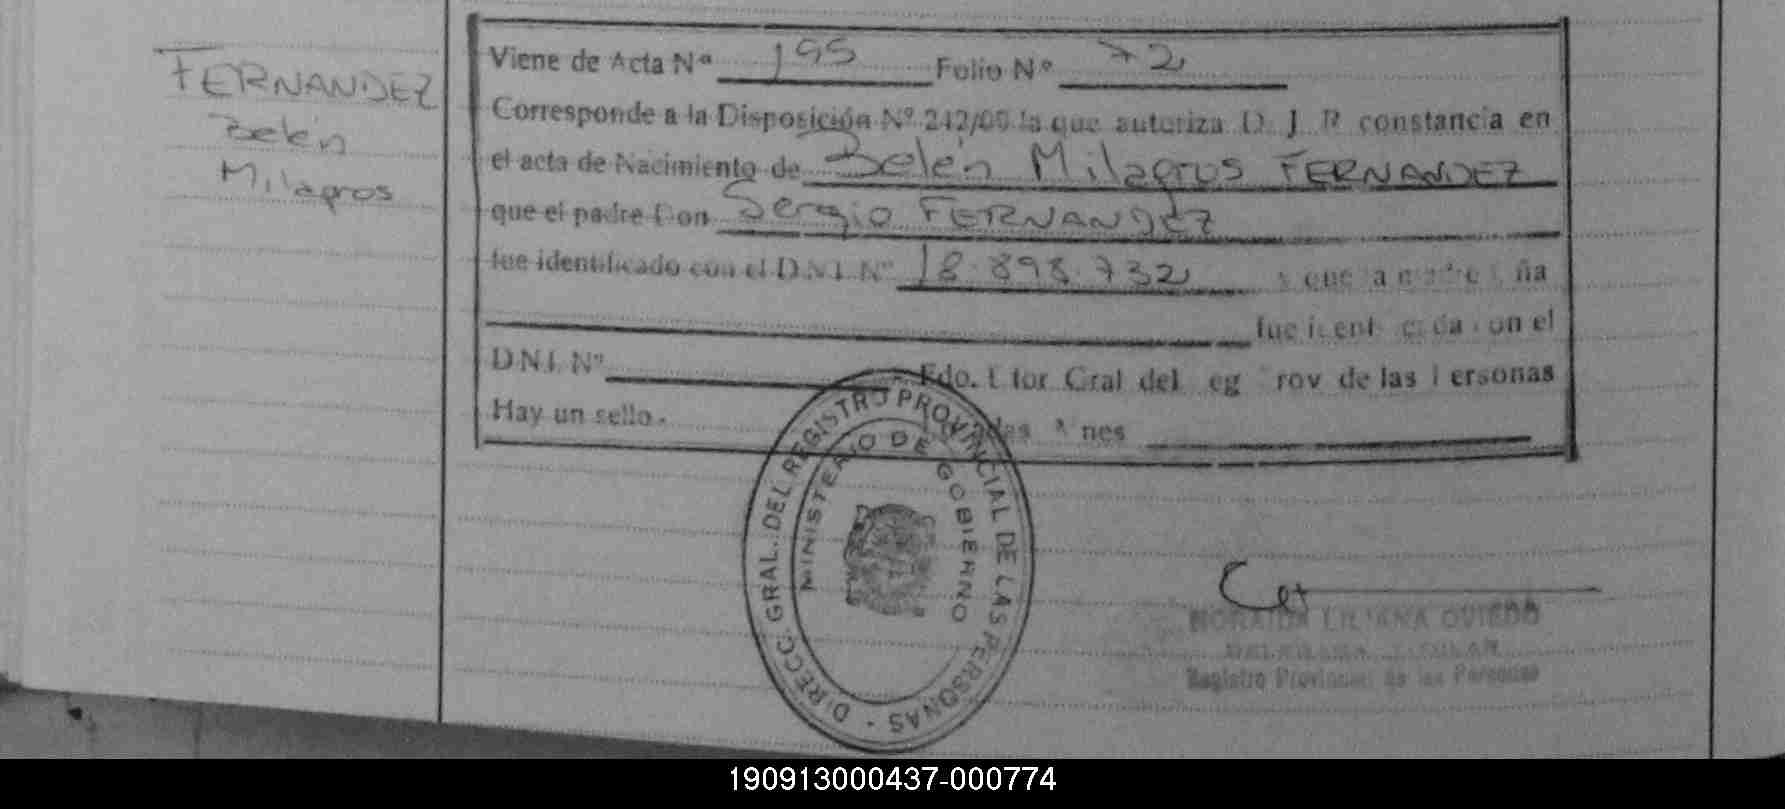 FERNANDEZ
Belén
Milagros
Viene de Acta Nº 195 Folio Nº 72
Corresponde a la Disposición Nº 242/00 la que autoriza D. J. R constancia en
el acta de Nacimiento de Belén Milagros FERNANDEZ
que el padre Don Sergio FERNANDEZ
fue identificado con el D.N.I. Nº 18.898.732 y que la madre ña
fue identificada con el
D.N.I. Nº Fdo. Gral del eg rov de las ersonas
Hay un sello.
DIRECC. GRAL. DEL REGISTRO PROVINCIAL DE LAS PERSONAS -
MINISTERIO DE GOBIERNO
NORAIDA LILIANA OVIEDO
Registro Provincial de las Personas
190913000437-000774